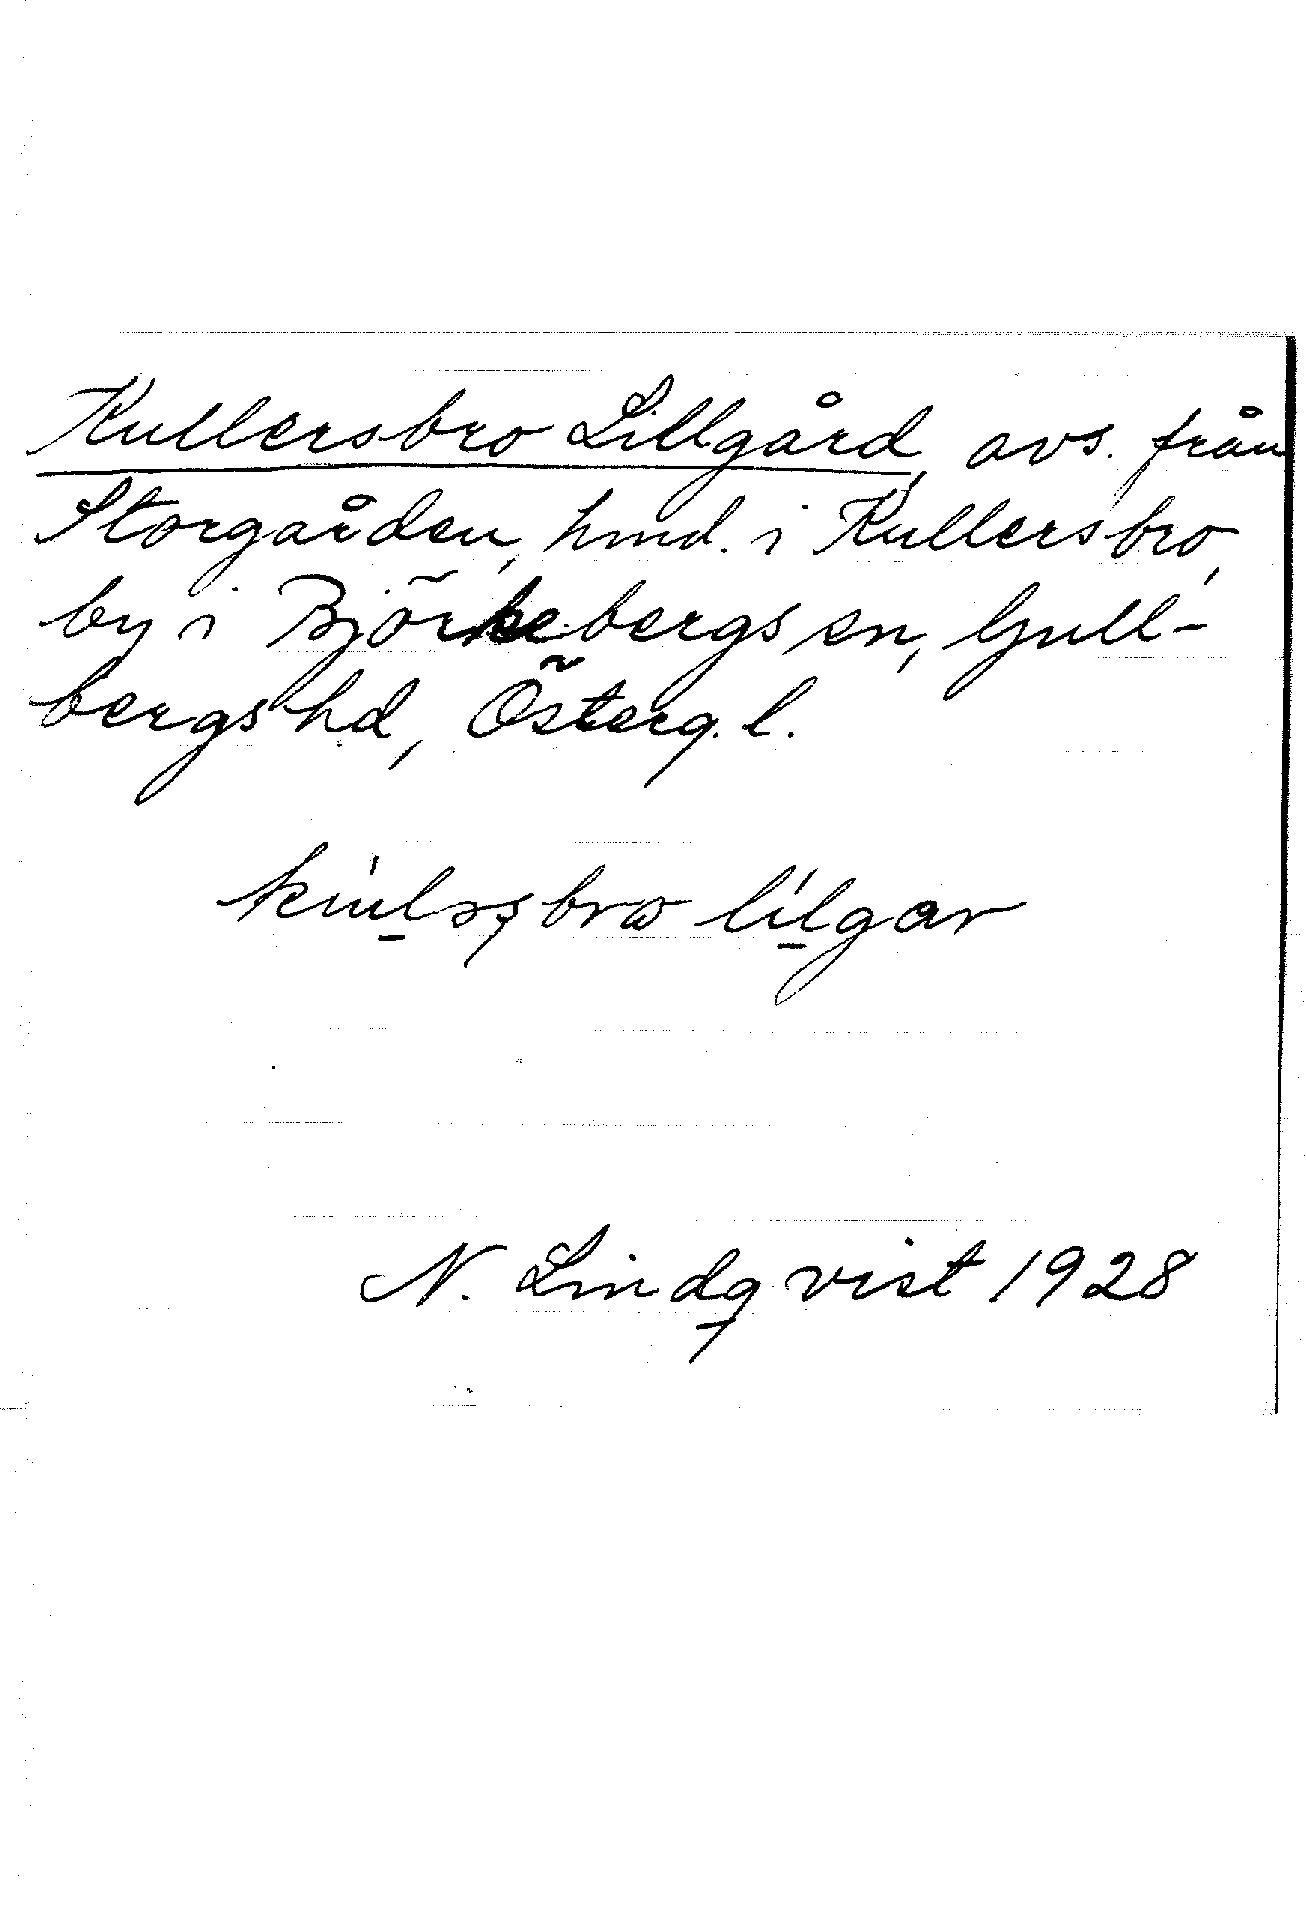 Kullersbro Lillgård, avs. från
Storgården, hmd. i Kullersbro,
by i Björkebergs sn, Gull-
bergs hd, Österg. l.
lílgar
N. Lindqvist 1928